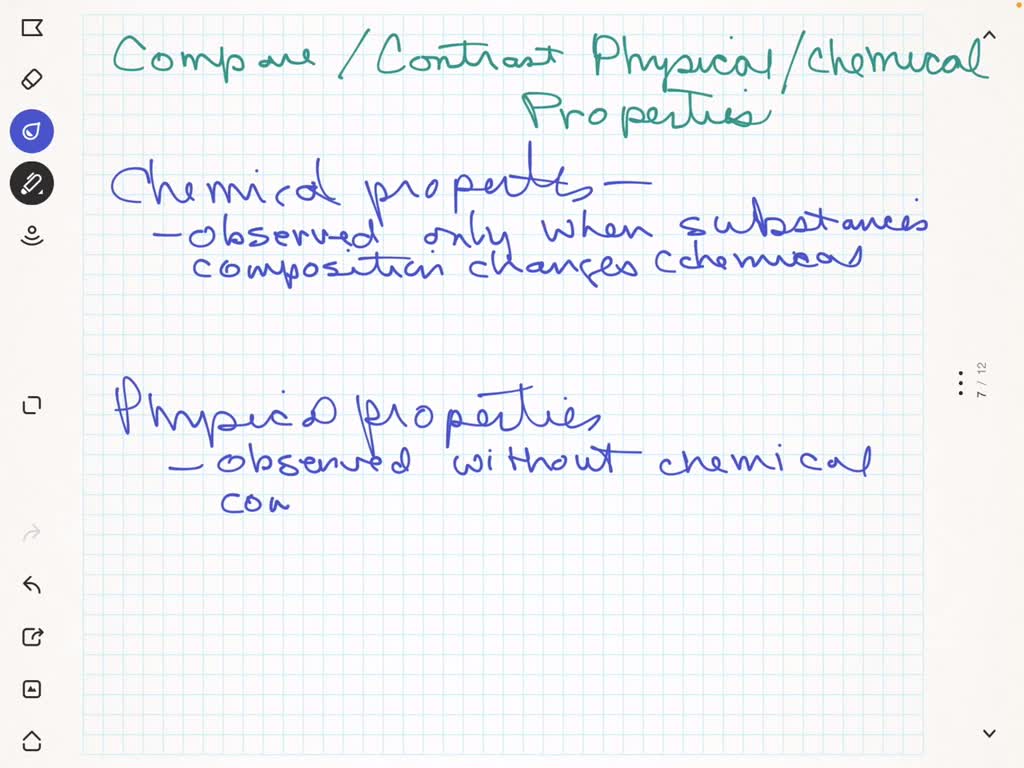 Compare / Contrast Physical / chemical
Properties
Chemical properties —
- observed only when substances
composition changes (chemical
Physical properties
- observed without chemical
com
7 / 12